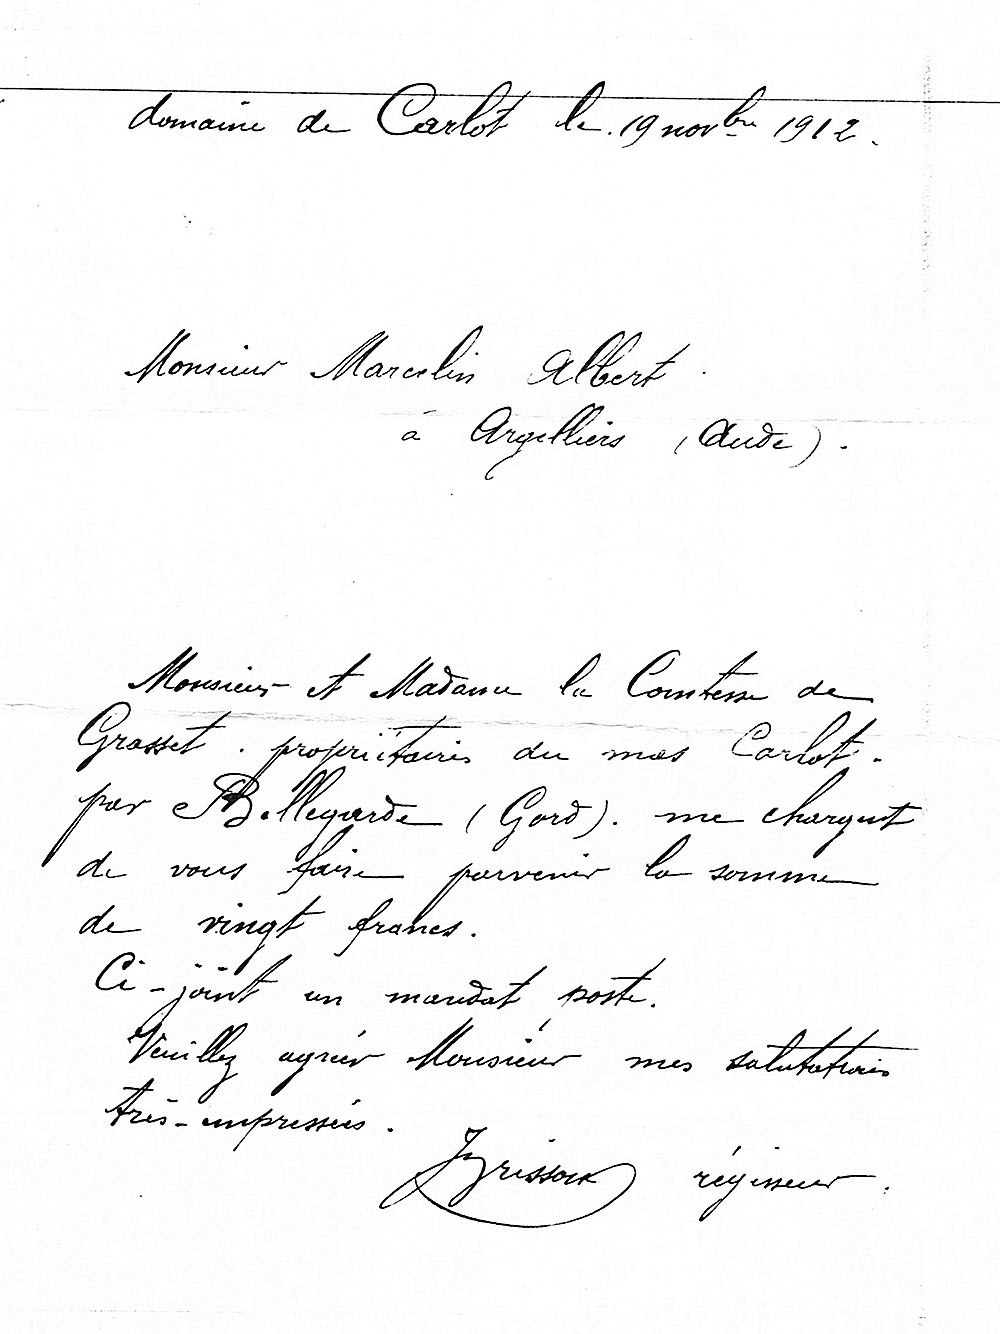 domaine de Carlot le 19 novbre 1912.
Monsieur Marcelin Albert
à Argelliers (Aude).
Monsieur et Madame la Comtesse de
Grasset. propriétaires du mas Carlot.
par Bellegarde (Gard). me chargent
de vous faire parvenir la somme
de vingt francs.
Ci-joint un mandat poste.
Veuillez agréer Monsieur mes salutations
très-empressées.
régisseur.